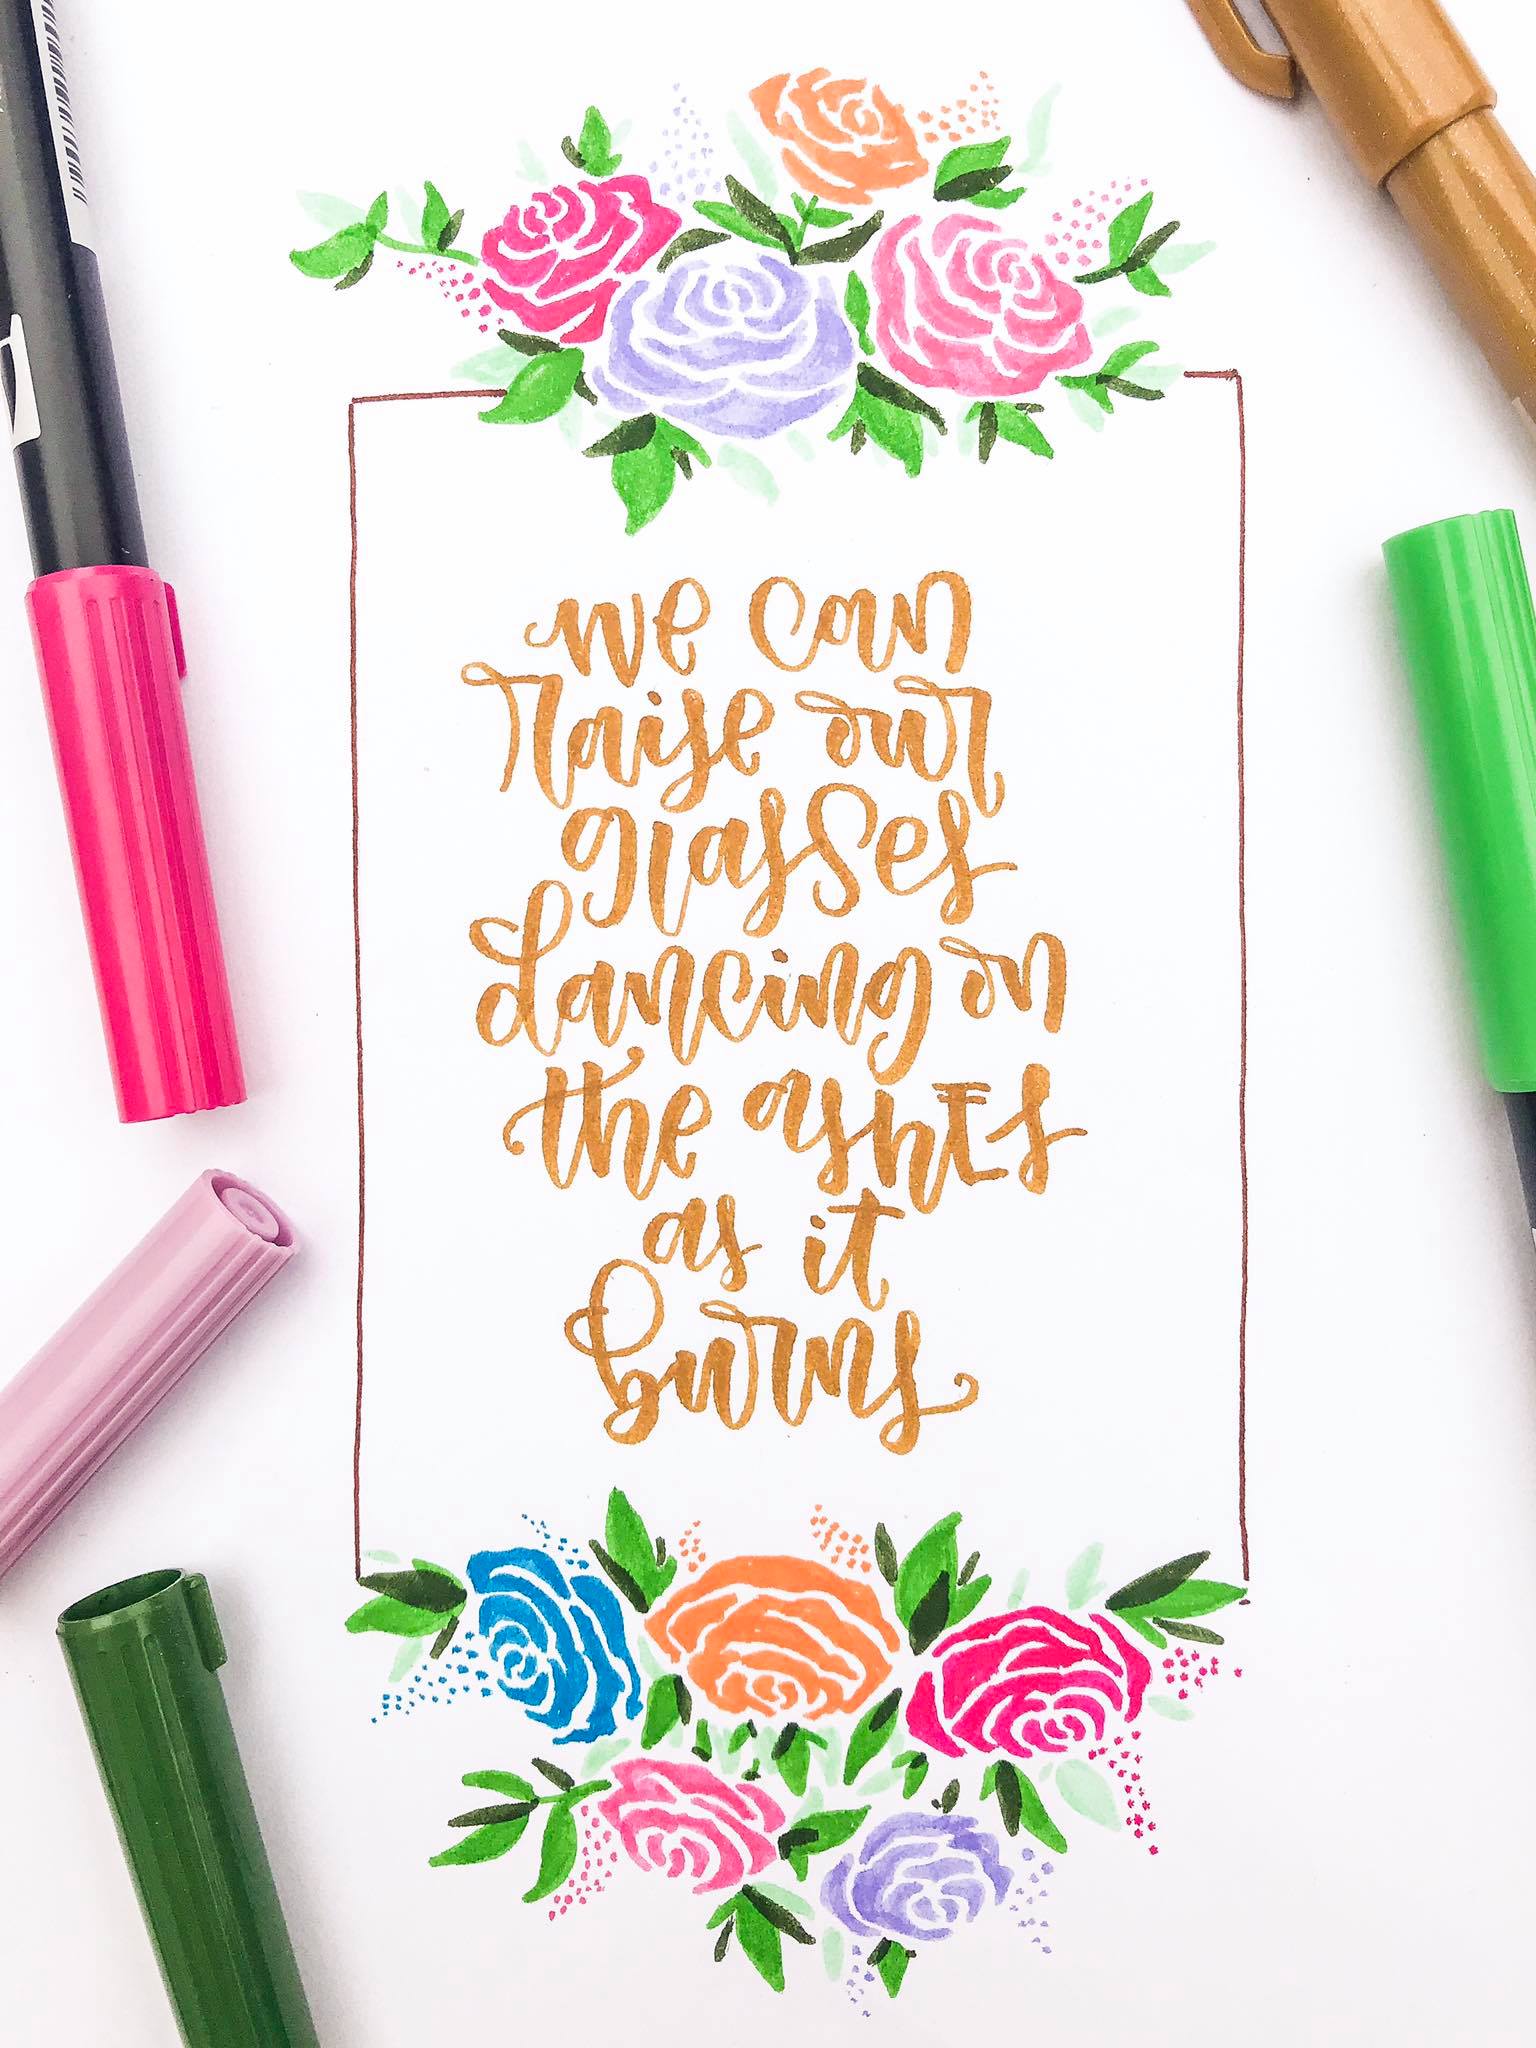 we can
raise our
glasses
dancing on
the ashes
as it
burns